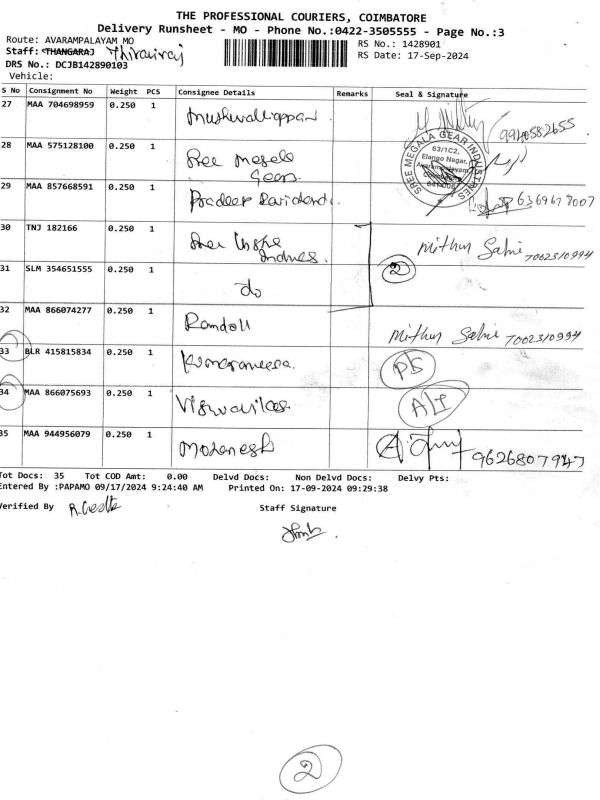 THE PROFESSIONAL COURIERS, COIMBATORE
Delivery Runsheet - MO - Phone No.:0422-3505555 - Page No.:3
Route: AVARAMPALAYAM MO
RS No.: 1428901
Staff: THANGARAJ
RS Date: 17-Sep-2024
DRS No.: DCJB142890103
Vehicle:
S No Consignment No Weight PCS Consignee Details Remarks Seal & Signature
27 MAA 704698959 0.250 1 9940582655
28 MAA 575128100 0.250 1 Sree Megala Gears
SREE MEGALA GEAR INDUSTRIES
63/1C2,
Elango Nagar,
Avarampalayam
29 MAA 857668591 0.250 1 Pradeep
30 TNJ 182166 0.250 1 Sree Mithun 7002310994
31 SLM 354651555 0.250 1 do 2
32 MAA 866074277 0.250 1 Mithun 7002310994
33 BLR 415815834 0.250 1
34 MAA 866075693 0.250 1
35 MAA 944956079 0.250 1 9626807947
Tot Docs: 35 Tot COD Amt: 0.00 Delvd Docs: Non Delvd Docs: Delvy Pts:
Entered By :PAPAMO 09/17/2024 9:24:40 AM Printed On: 17-09-2024 09:29:38
Verified By
Staff Signature
2